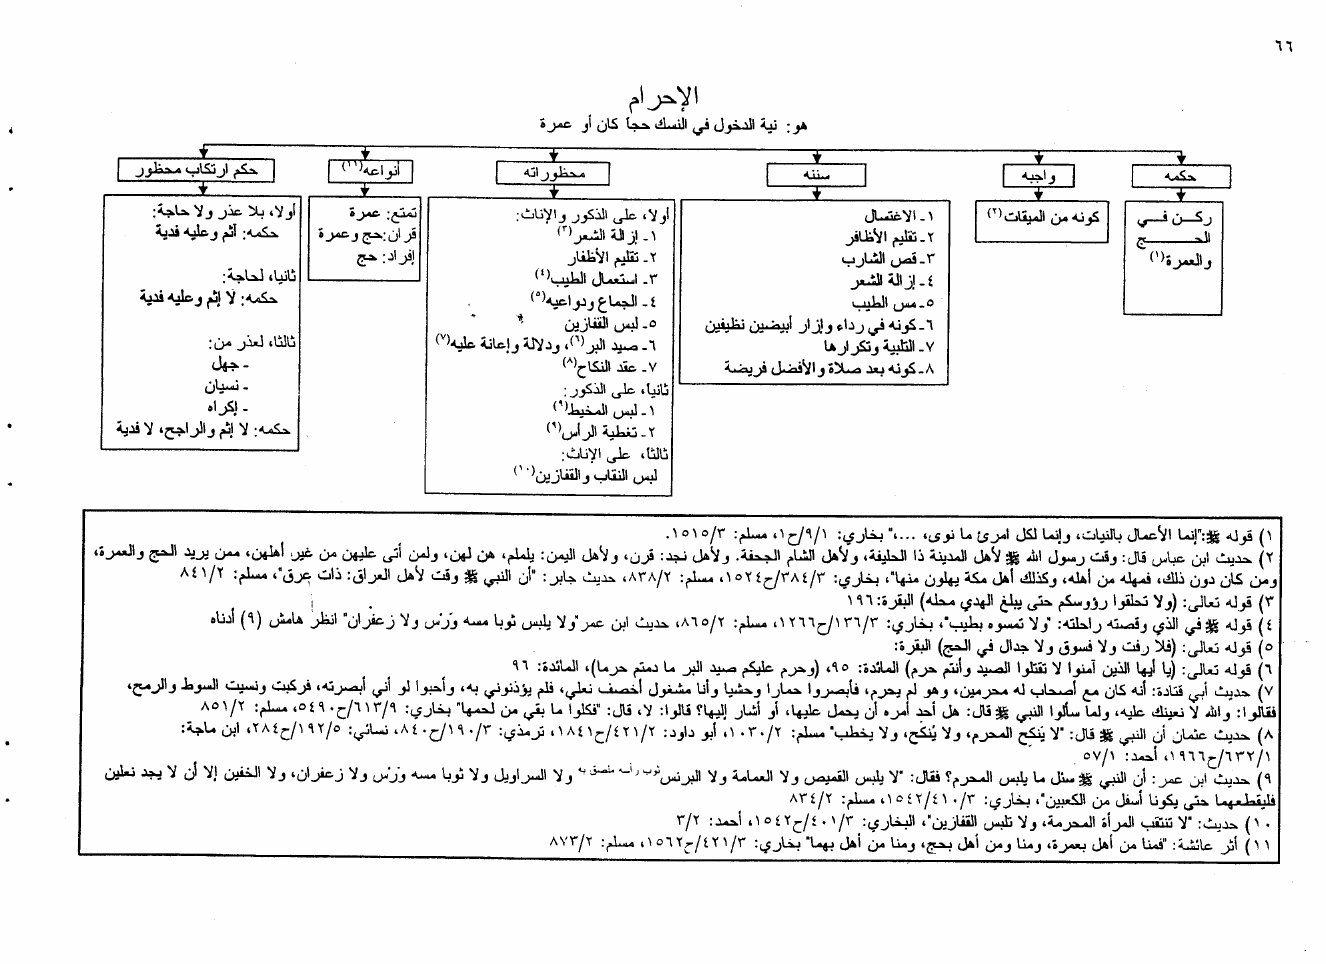 ٦٦
الإحرام
هو: نية الدخول في النسك حجاً كان أو عمرة
حكمه
ركن في
الحج
والعمرة(١)
واجبه
كونه من الميقات(٢)
سننه
١- الاغتسال
٢- تقليم الأظافر
٣- قص الشارب
٤- إزالة الشعر
٥- مس الطيب
٦- كونه في رداء وإزار أبيضين نظيفين
٧- التلبية وتكرارها
٨- كونه بعد صلاة والأفضل فريضة
محظوراته
أولا، على الذكور والإناث:
١- إزالة الشعر(٣)
٢- تقليم الأظفار
٣- استعمال الطيب(٤)
٤- الجماع ودواعيه(٥)
٥- لبس القفازين
٦- صيد البر(٦)، ودلالة وإعانة عليه(٧)
٧- عقد النكاح(٨)
ثانيا، على الذكور:
١- لبس المخيط(٩)
٢- تغطية الرأس(٩)
ثالثا، على الإناث:
لبس النقاب والقفازين(١٠)
أنواعه(١١)
تمتع: عمرة
قران: حج وعمرة
إفراد: حج
حكم ارتكاب محظور
أولا، بلا عذر ولا حاجة:
حكمه: أثم وعليه فدية
ثانيا، لحاجة:
حكمه: لا إثم وعليه فدية
ثالثا، لعذر من:
- جهل
- نسيان
- إكراه
حكمه: لا إثم والراجح، لا فدية
١) قوله ﷺ: "إنما الأعمال بالنيات، وإنما لكل امرئ ما نوى، ...،" بخاري: ٩/١/ح١، مسلم: ١٥١٥/٣.
٢) حديث ابن عباس قال: وقت رسول الله ﷺ لأهل المدينة ذا الحليفة، ولأهل الشام الجحفة. ولأهل نجد: قرن، ولأهل اليمن: يلملم، هن لهن، ولمن أتى عليهن من غير أهلهن، ممن يريد الحج والعمرة،
ومن كان دون ذلك، فمهله من أهله، وكذلك أهل مكة يهلون منها"، بخاري: ٣٨٤/٣/ح١٥٢٤، مسلم: ٨٣٨/٢، حديث جابر: "أن النبي ﷺ وقت لأهل العراق: ذات عرق"، مسلم: ٨٤١/٢
٣) قوله تعالى: (ولا تحلقوا رؤوسكم حتى يبلغ الهدي محله) البقرة: ١٩٦
٤) قوله ﷺ في الذي وقصته راحلته: "ولا تمسوه بطيب"، بخاري: ١٣٦/٣/ح١٢٦٦، مسلم: ٨٦٥/٢، حديث ابن عمر "ولا يلبس ثوبا مسه ورس ولا زعفران" انظر هامش (٩) أدناه
٥) قوله تعالى: (فلا رفث ولا فسوق ولا جدال في الحج) البقرة:
٦) قوله تعالى: (يا أيها الذين آمنوا لا تقتلوا الصيد وأنتم حرم) المائدة: ٩٥، (وحرم عليكم صيد البر ما دمتم حرما)، المائدة: ٩٦
٧) حديث أبي قتادة: أنه كان مع أصحاب له محرمين، وهو لم يحرم، فأبصروا حمارا وحشيا وأنا مشغول أخصف نعلي، فلم يؤذنوني به، وأحبوا لو أني أبصرته، فركبت ونسيت السوط والرمح،
فقالوا: والله لا نعينك عليه، ولما سألوا النبي ﷺ قال: هل أحد أمره أن يحمل عليها، أو أشار إليها؟ قالوا: لا، قال: "فكلوا ما بقي من لحمها" بخاري: ٦١٣/٩/ح٥٤٩٠، مسلم: ٨٥١/٢
٨) حديث عثمان أن النبي ﷺ قال: "لا يَنكح المحرم، ولا يُنكح، ولا يخطب" مسلم: ١٠٣٠/٢، أبو داود: ٤٢١/٢/ح١٨٤١، ترمذي: ١٩٠/٣/ح٨٤٠، نسائي: ١٩٢/٥/ح٢٨٤، ابن ماجة:
٦٣٢/١/ح١٩٦٦، أحمد: ٥٧/١
٩) حديث ابن عمر: أن النبي ﷺ سئل ما يلبس المحرم؟ فقال: "لا يلبس القميص ولا العمامة ولا البرنس ثوب رأسه ملتصق به ولا السراويل ولا ثوبا مسه ورس ولا زعفران، ولا الخفين إلا أن لا يجد نعلين
فليقطعهما حتى يكونا أسفل من الكعبين"، بخاري: ٤١٠/٣/١٥٤٢، مسلم: ٨٣٤/٢
١٠) حديث: "لا تنتقب المرأة المحرمة، ولا تلبس القفازين"، البخاري: ٤٠١/٣/ح١٥٤٢، أحمد: ٣/٢
١١) أثر عائشة: "فمنا من أهل بعمرة، ومنا ومن أهل بحج، ومنا من أهل بهما" بخاري: ٤٢١/٣/ح١٥٦٢، مسلم: ٨٧٣/٢